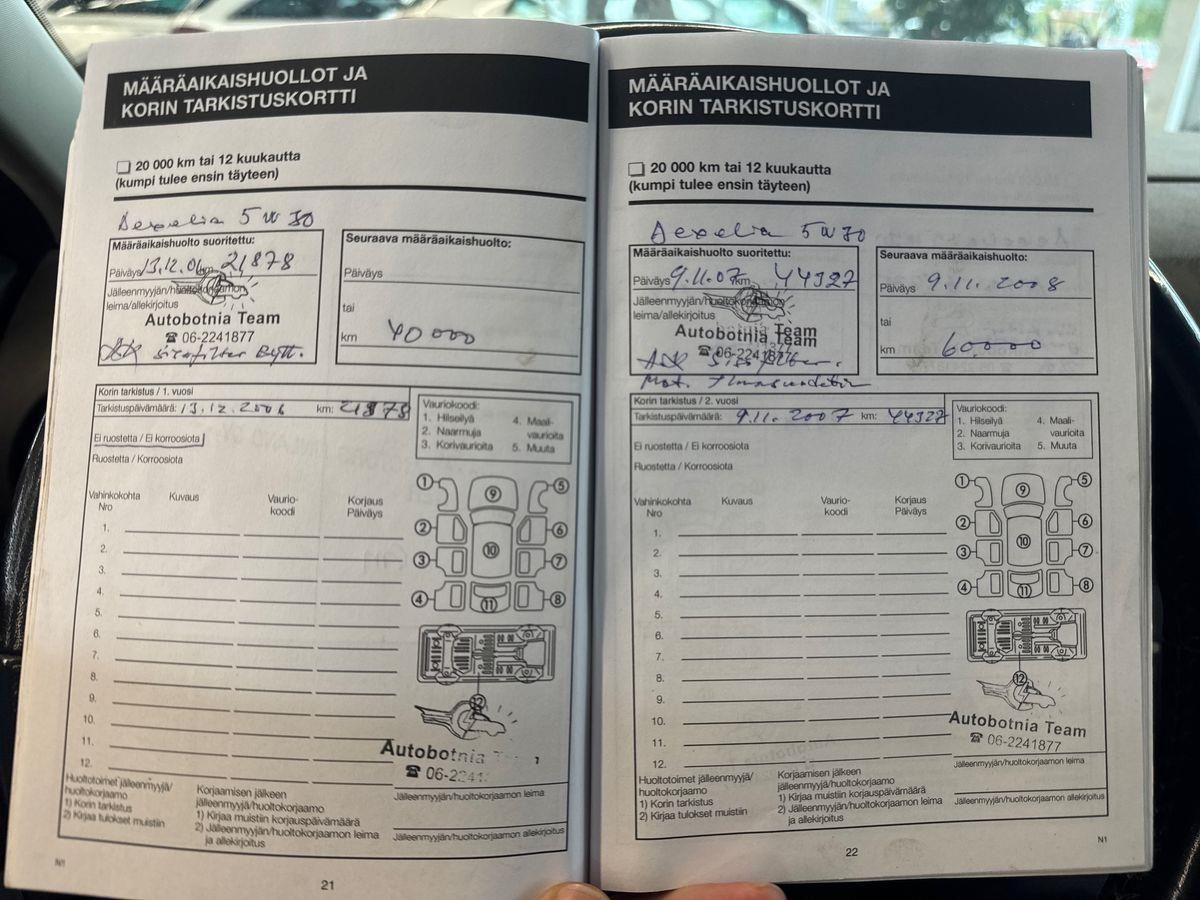 MÄÄRÄAIKAISHUOLLOT JA
KORIN TARKISTUSKORTTI
20 000 km tai 12 kuukautta
(kumpi tulee ensin täyteen)
5 W 30
Määräaikaishuolto suoritettu:
Päiväys 13.12.06 km 21,878
Jälleenmyyjän/huoltokorjaamon
leima/allekirjoitus
Autobotnia Team
☎ 06-2241877
Bytt.
Seuraava määräaikaishuolto:
Päiväys
tai
km 40 000
Korin tarkistus / 1. vuosi
Tarkistuspäivämäärä: 13.12.2006 km: 21878
Ei ruostetta / Ei korroosiota
Ruostetta / Korroosiota
Vauriokoodi:
1. Hilseilyä
2. Naarmuja
3. Korivaurioita
4. Maali-
vaurioita
5. Muuta
Vahinkokohta
Nro
Kuvaus
Vaurio-
koodi
Korjaus
Päiväys
1.
2.
3.
4.
5.
6.
7.
8.
9.
10.
11.
12.
1
2
3
4
5
6
7
8
9
10
11
12
Autobotnia
☎ 06-2241
Huoltotoimet jälleenmyyjä/
huoltokorjaamo
1) Korin tarkistus
2) Kirjaa tulokset muistiin
Korjaamisen jälkeen
jälleenmyyjä/huoltokorjaamo
1) Kirjaa muistiin korjauspäivämäärä
2) Jälleenmyyjän/huoltokorjaamon leima
ja allekirjoitus
Jälleenmyyjän/huoltokorjaamon leima
Jälleenmyyjän/huoltokorjaamon allekirjoitus
N1
21
MÄÄRÄAIKAISHUOLLOT JA
KORIN TARKISTUSKORTTI
20 000 km tai 12 kuukautta
(kumpi tulee ensin täyteen)
5 W 30
Määräaikaishuolto suoritettu:
Päiväys 9.11.07 km 44327
Jälleenmyyjän/huoltokorjaamon
leima/allekirjoitus
Autobotnia Team
☎ 06-2241877
Mot.
Seuraava määräaikaishuolto:
Päiväys 9.11.2008
tai
km 60.000
Korin tarkistus / 2. vuosi
Tarkistuspäivämäärä: 9.11.2007 km: 44327
Ei ruostetta / Ei korroosiota
Ruostetta / Korroosiota
Vauriokoodi:
1. Hilseilyä
2. Naarmuja
3. Korivaurioita
4. Maali-
vaurioita
5. Muuta
Vahinkokohta
Nro
Kuvaus
Vaurio-
koodi
Korjaus
Päiväys
1.
2.
3.
4.
5.
6.
7.
8.
9.
10.
11.
12.
1
2
3
4
5
6
7
8
9
10
11
12
Autobotnia Team
☎ 06-2241877
Huoltotoimet jälleenmyyjä/
huoltokorjaamo
1) Korin tarkistus
2) Kirjaa tulokset muistiin
Korjaamisen jälkeen
jälleenmyyjä/huoltokorjaamo
1) Kirjaa muistiin korjauspäivämäärä
2) Jälleenmyyjän/huoltokorjaamon leima
ja allekirjoitus
Jälleenmyyjän/huoltokorjaamon leima
Jälleenmyyjän/huoltokorjaamon allekirjoitus
N1
22